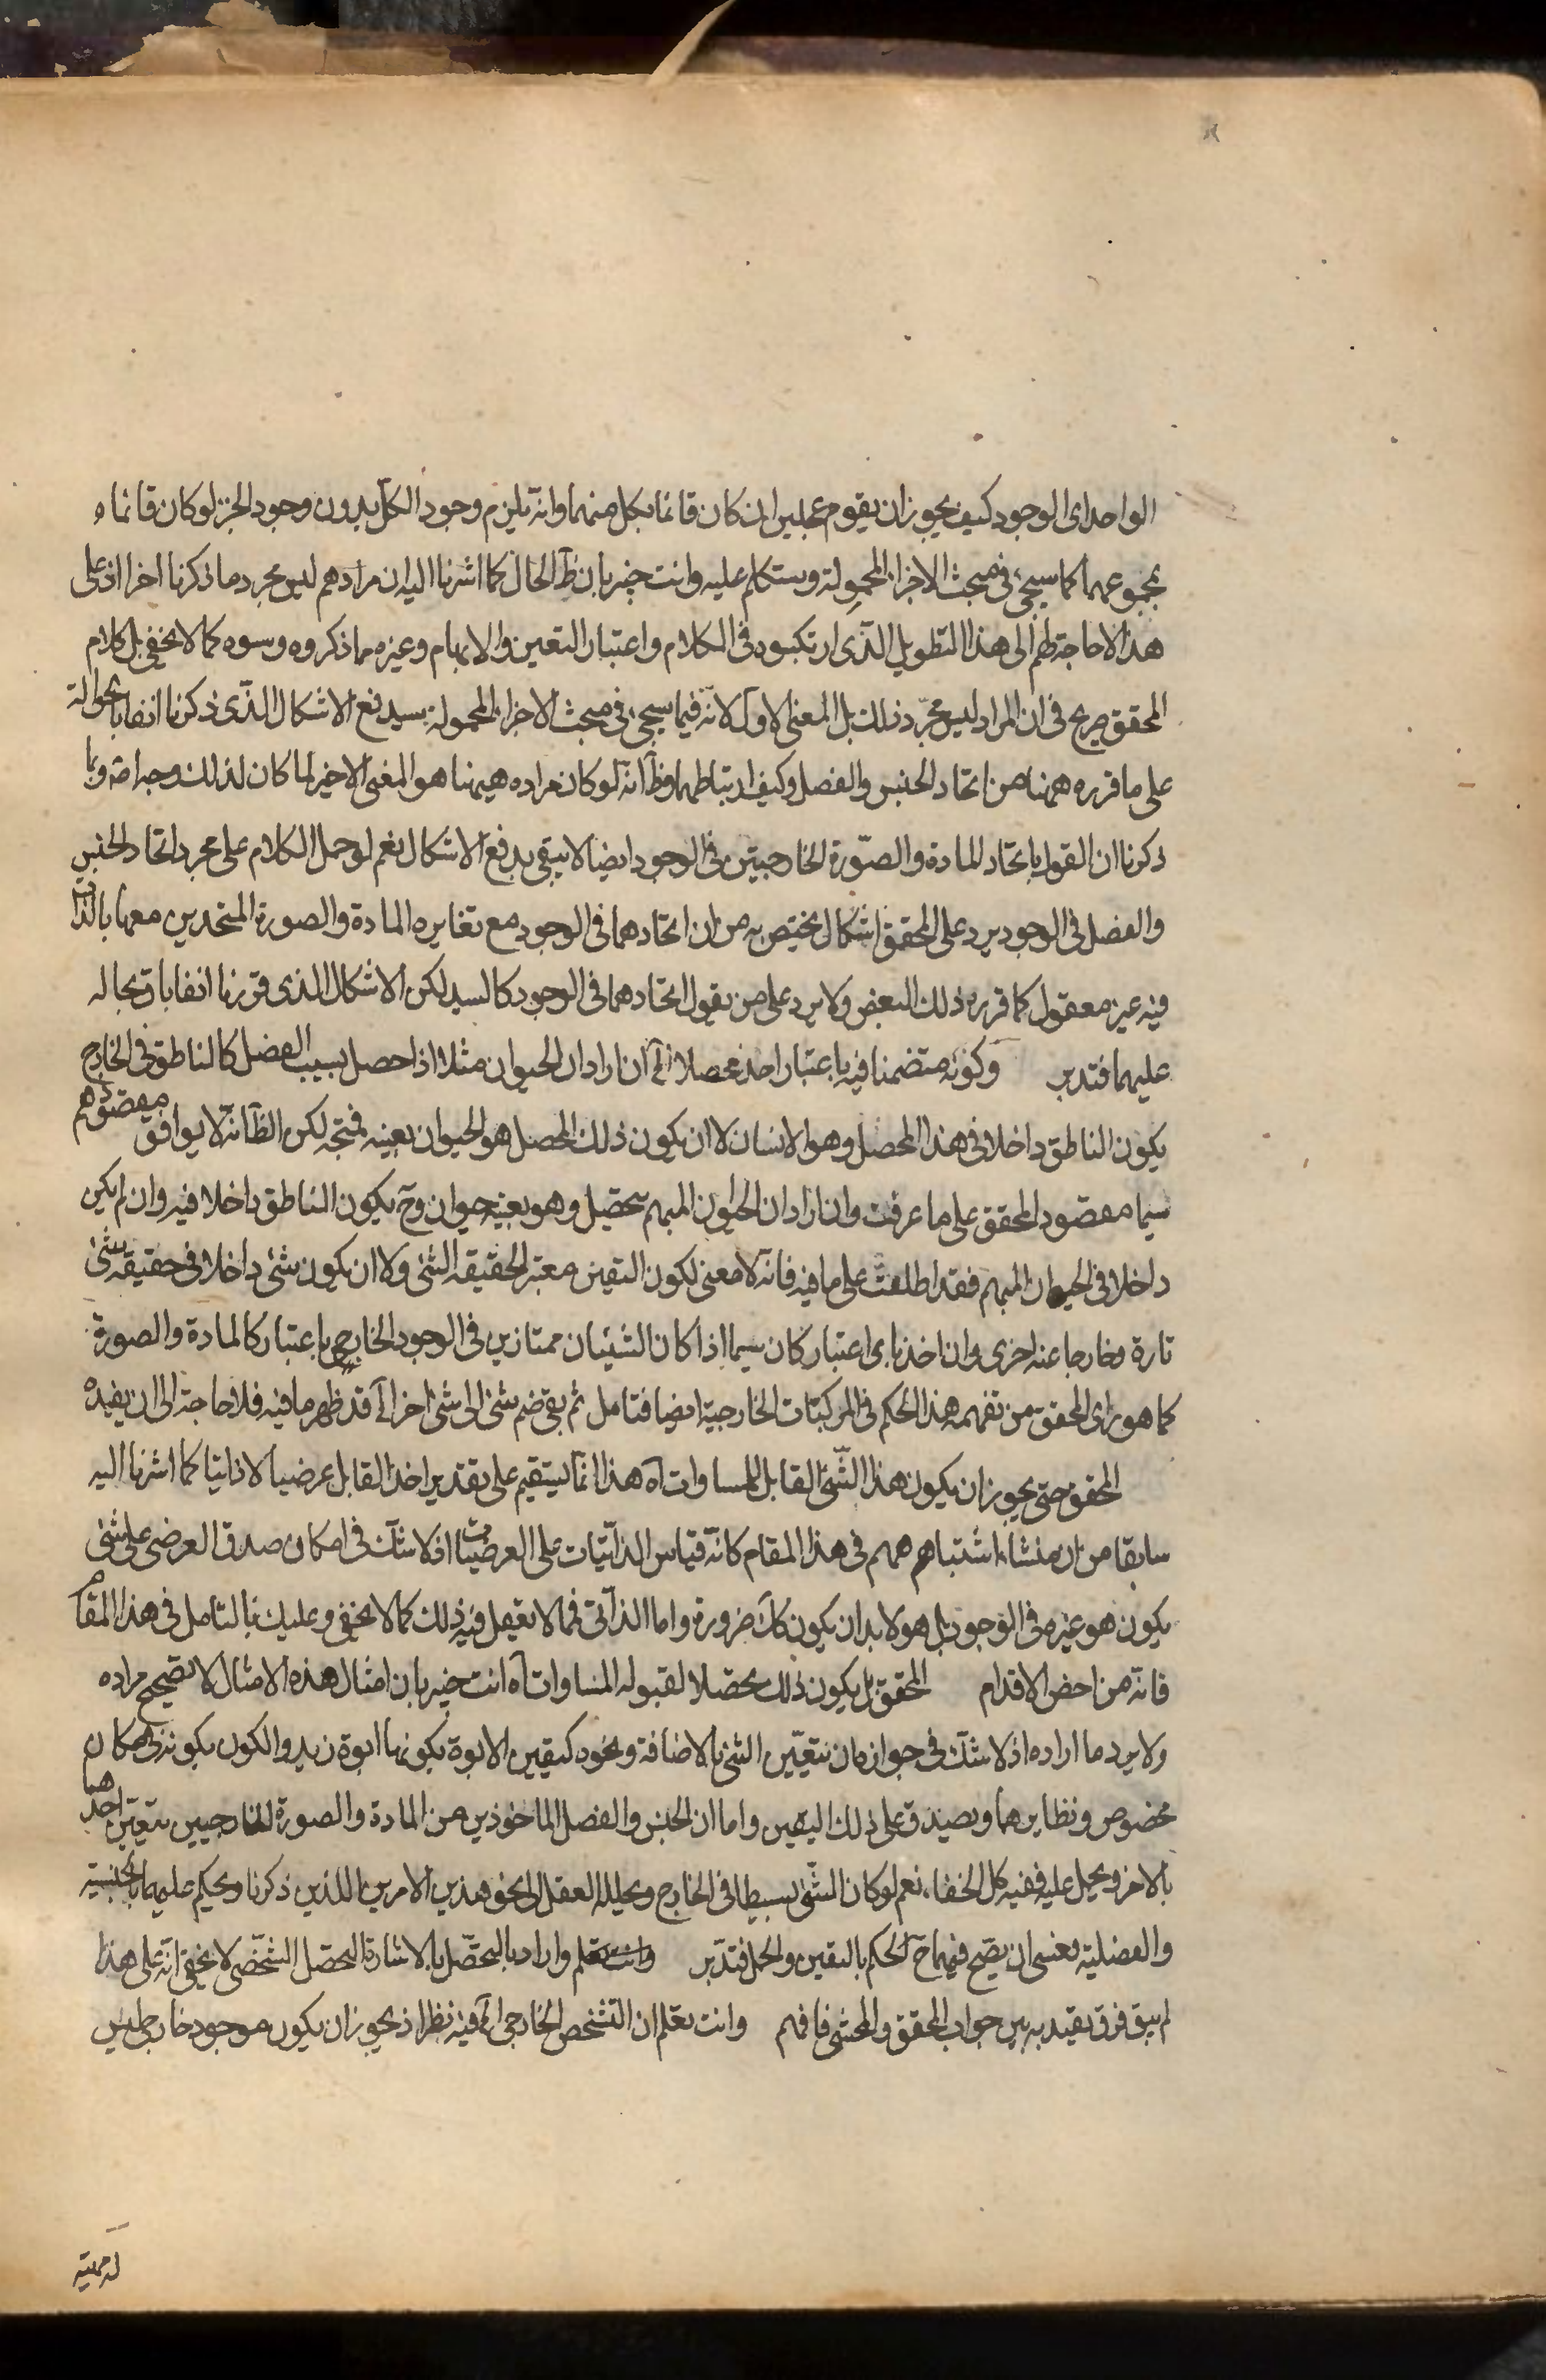 الواحد اى الوجود كيف يجوز ان يقوم بمحلين ان كان قائما بكل منهما وانه يلزم وجود الكل بدون وجود الجزء لو كان قائما
بمجموعهما كما سيجئ فى مبحث الاجزاء المحمولة وستكلم عليه وانت خبير بان ظ الحال كما اشرنا اليه ان مرادهم ليس مجرد ما ذكرنا اخرا اذ على
هذا لا حاجة لهم الى هذا التطويل الذى ارتكبوه فى الكلام واعتبار التعين والابهام وغيره مما ذكروه وسوه كما لا يخفى بل كلام
المحقق صريح فى ان المراد ليس مجرد ذلك بل المعنى الاول لانه فيما سيجئ فى مبحث الاجزاء المحمولة سيدفع الاشكال الذى ذكرنا انفا بالحوالة
على ما قرره ههنا من اتحاد الجنس والفصل وكيف ارتباطهما وظ انه لو كان مراده هيهنا هو المعنى الاخير لما كان لذلك وجه اصلا وبما
ذكرنا ان القول باتحاد المادة والصورة الخارجيتين فى الوجود ايضا لا يبقى بدفع الاشكال نعم لو حمل الكلام على مجرد اتحاد الجنس
والفصل فى الوجود يرد على المحقق اشكال يختص به من ان اتحادهما فى الوجود مع تغاير المادة والصورة المتحدين معهما بالذات
فيه غير معقول كما قرره ذلك البعض ولا يرد على من يقول اتحادهما فى الوجود كالسيد لكن الاشكال الذى قررنا انفا باق بحاله
عليهما فتدبر وكونه متضمنا فيه باعتبار اخذ محصلا الخ ان اراد ان الحيوان مثلا اذا حصل بسبب الفصل كالناطق فى الخارج
يكون الناطق داخلا فى هذا المحصل وهو الانسان لا ان يكون ذلك المحصل هو الحيوان بعينه فمتجه لكن الظ انه لا يوافق مقصودهم
سيما مقصود المحقق على ما عرفت وان اراد ان الحيوان المبهم يتحصل وهو بعينه حيوان وح يكون الناطق داخلا فيه وان لم يكن
داخلا فى الحيوان المبهم فقد اطلعت على ما فيه فانه لا معنى لكون التعين معتبرا لحقيقة الشئ ولا ان يكون شئ داخلا فى حقيقة شئ
تارة وخارجا عنه اخرى وان اخذ باى اعتبار كان سيما اذا كان الشيئان ممتازين فى الوجود الخارجى باعتبار كالمادة والصورة
كما هو راى المحقق من تفهمه هذا الحكم فى المركبات الخارجية ايضا فتامل ثم بقى ضم شئ الى شئ اخر الخ قد ظهر ما فيه فلا حاجة الى ان يفيده
المحقق حتى يجوز ان يكون هذا الشئ القابل للمساوات اه هذا انما يستقيم على تقدير اخذ القابل عرضيا لا ذاتيا كما اشرنا اليه
سابقا من ان منشاء اشتباههم فى هذا المقام كانه قياس الذاتيات على العرضيات اذ لا شك فى امكان صدق العرضى على شئ
يكون هو غيره فى الوجود بل هو لا بد ان يكون كك ضرورة واما الذاتى فمما لا يعقل فيه ذلك كما لا يخفى وعليك بالتامل فى هذا المقام
فانه من احض الاقدام المحقق بل يكون ذلك محصلا لقبوله المساوات اه انت خبير بان امثال هذه الامثال لا تصحيح مراده
ولا يرد ما اراده اذ لا شك فى جواز ان يتعين الشئ بالاضافة ونحوه كتعين الابوة بكونها ابوة زيد والكون بكونه فى مكان
مخصوص ونظايرهما ويصدق على ذلك التعين واما ان الجنس والفصل الماخوذين من المادة والصورة الخارجيين يتعين احدهما
بالاخر ويحمل عليه ففيه كل الخفاء نعم لو كان الشئ بسيطا فى الخارج ويحلله العقل الى نحو هذين الامرين اللذين ذكرنا ويحكم عليهما بالجنسية
والفصلية فعسى ان يصح فيهما ح الحكم بالتعين والحمل فتدبر واراد بالتحصل بالاشارة التحصل الشخصى لا يخفى انه على هذا
لم يبق فرق يعتد به بين جواب المحقق والمحشى فافهم وانت تعلم ان التشخص الخارجى الخ فيه نظر اذ يجوز ان يكون موجود خارجى ليس
له مهية